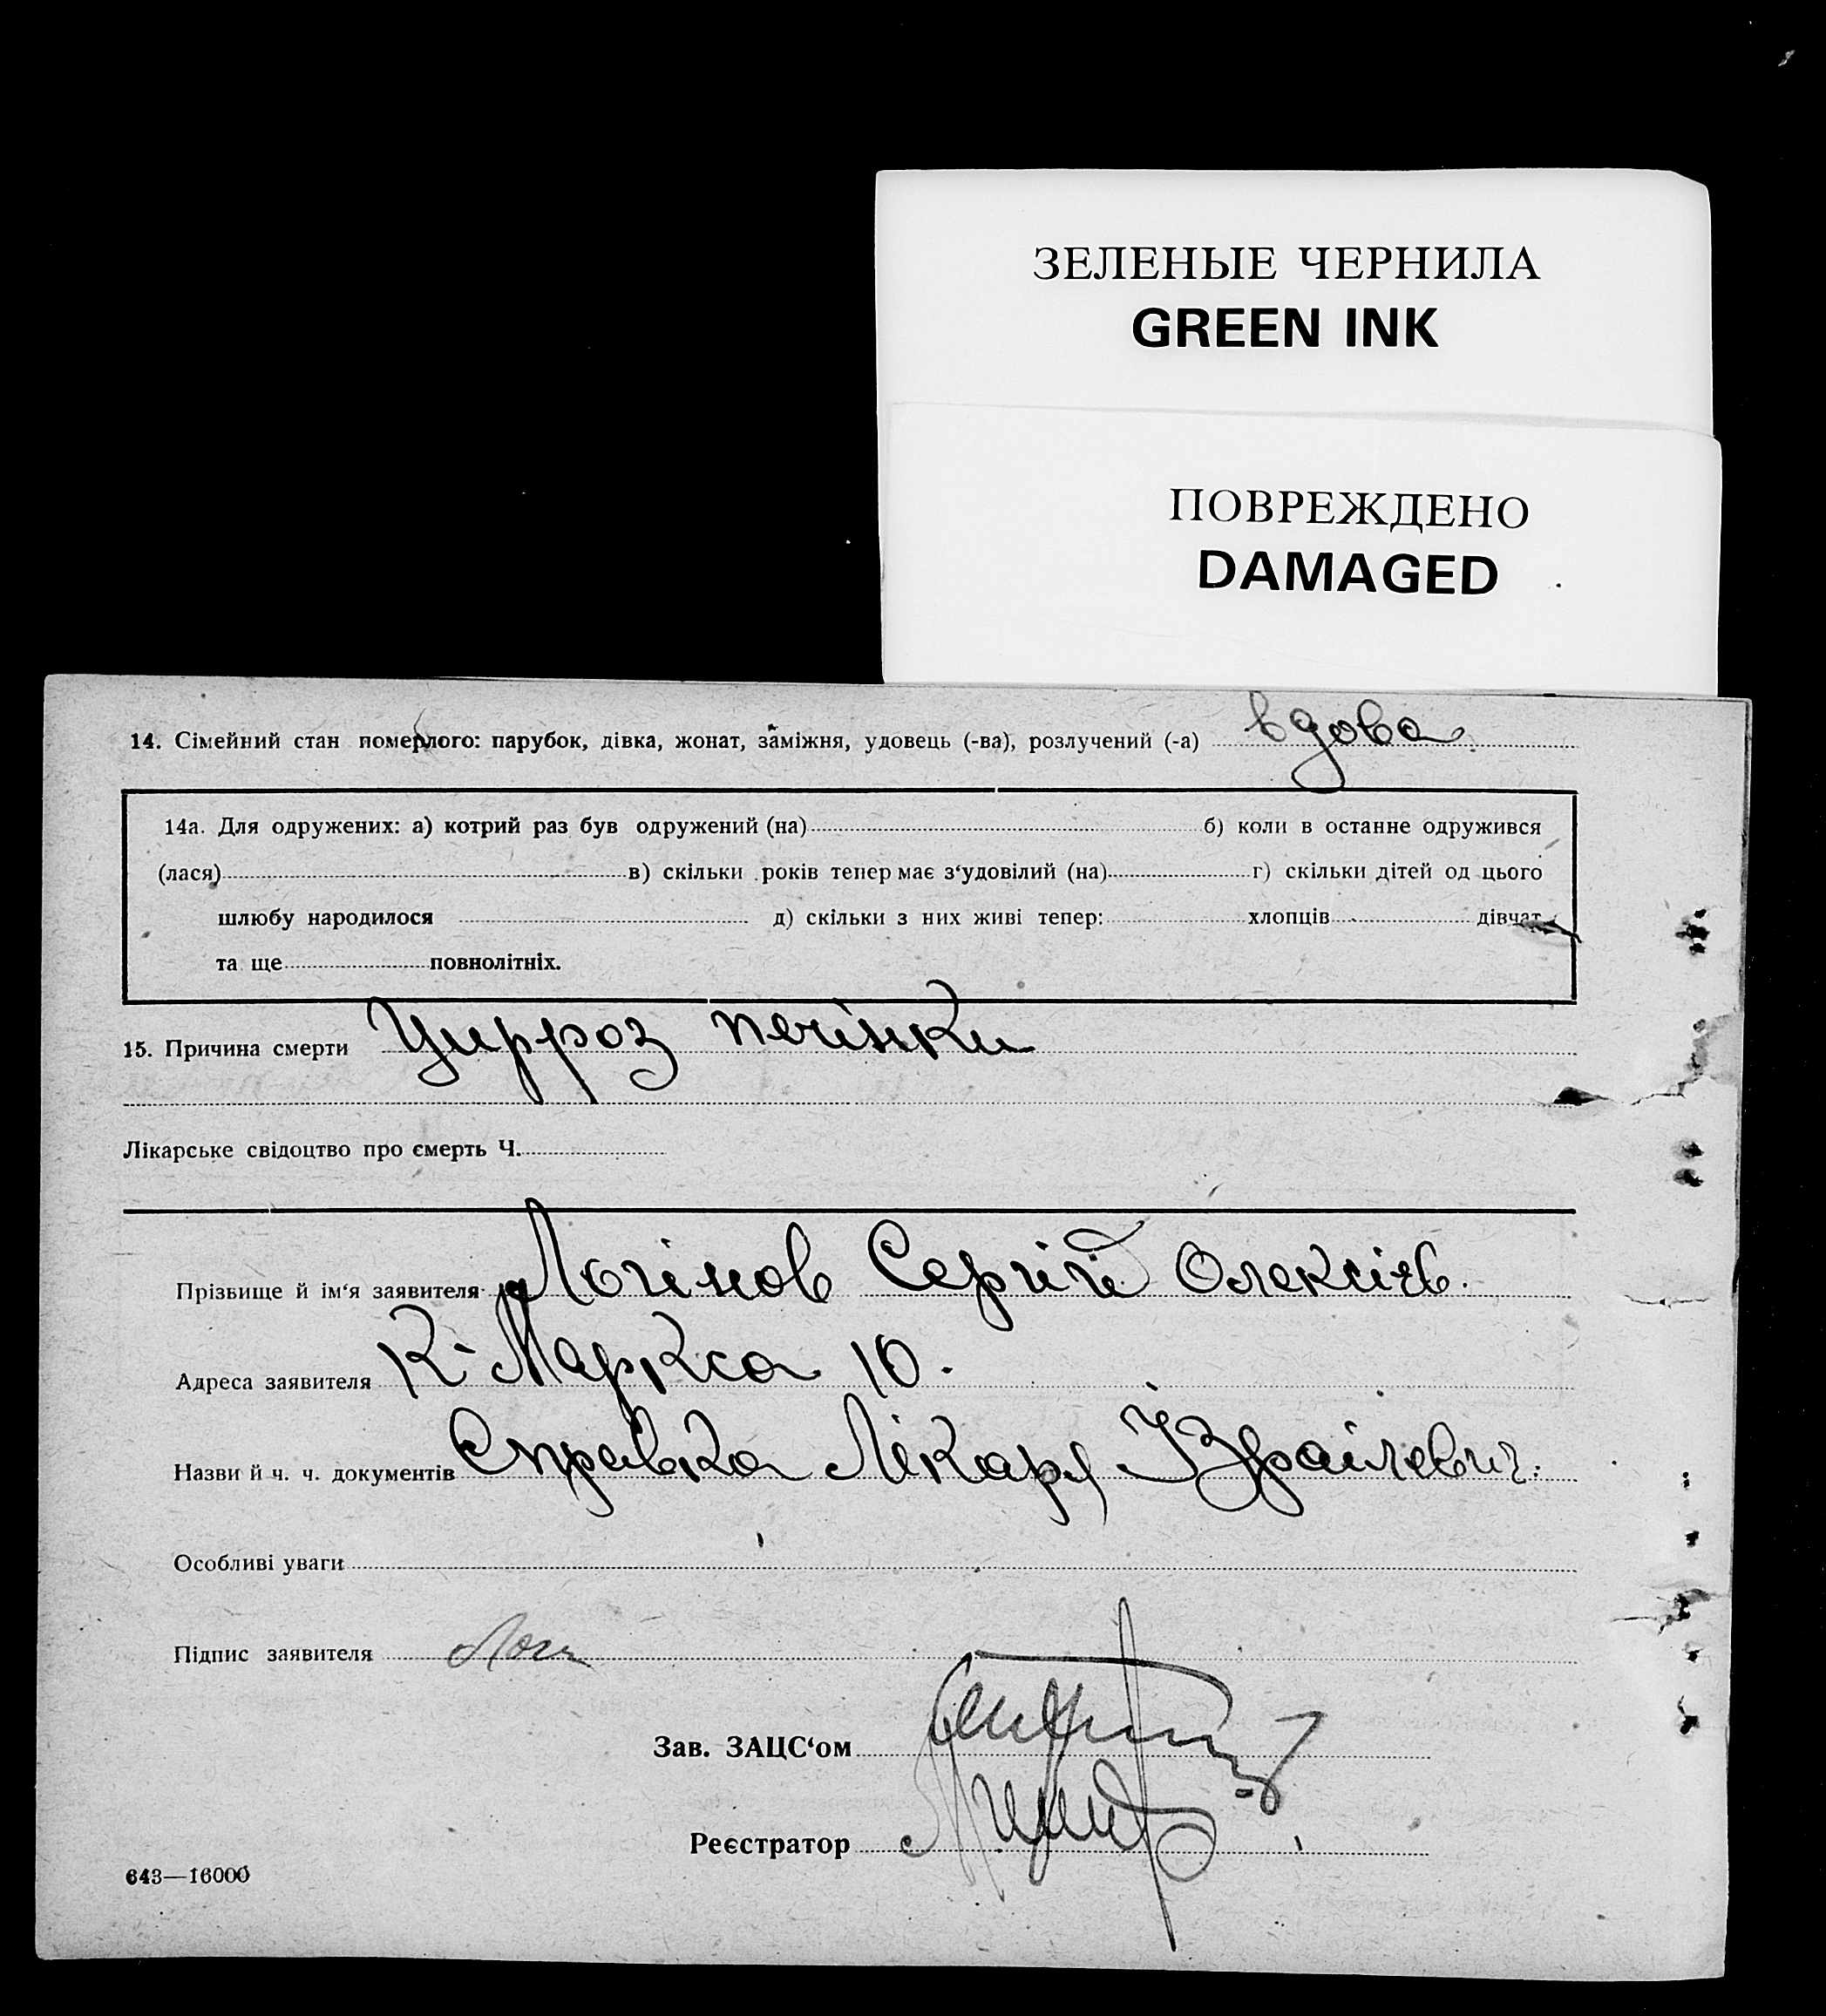 ЗЕЛЕНЫЕ ЧЕРНИЛА
GREEN INK
ПОВРЕЖДЕНО
DAMAGED
14. Сімейний стан померлого: парубок, дівка, жонат, заміжня, удовець (-ва), розлучений (-а) вдова
14а. Для одружених: а) котрий раз був одружений (на) б) коли в останне одружився
(лася) в) скільки років тепер має з‘удовілий (на) г) скільки дітей од цього
шлюбу народилося д) скільки з них живі тепер: хлопців дівчат
та ще повнолітніх.
15. Причина смерти Цирроз печінки
Лікарське свідоцтво про смерть Ч.
Прізвище й ім‘я заявителя Логінов Сергій Олексієв.
Адреса заявителя К-Маркса 10.
Назви й ч. ч. документів Справка Лікаря Ізраілевич.
Особливі уваги
Підпис заявителя Логи
Зав. ЗАЦС‘ом
Реєстратор
643—16000